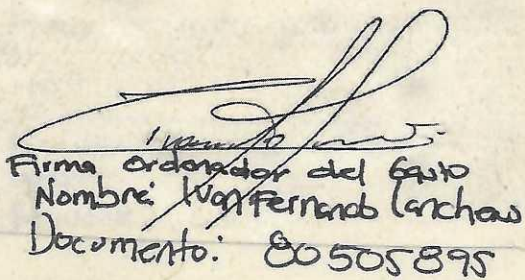 Firma Ordenador del Gasto
Nombre: Ivan Fernando Lancheros
Documento: 80505895